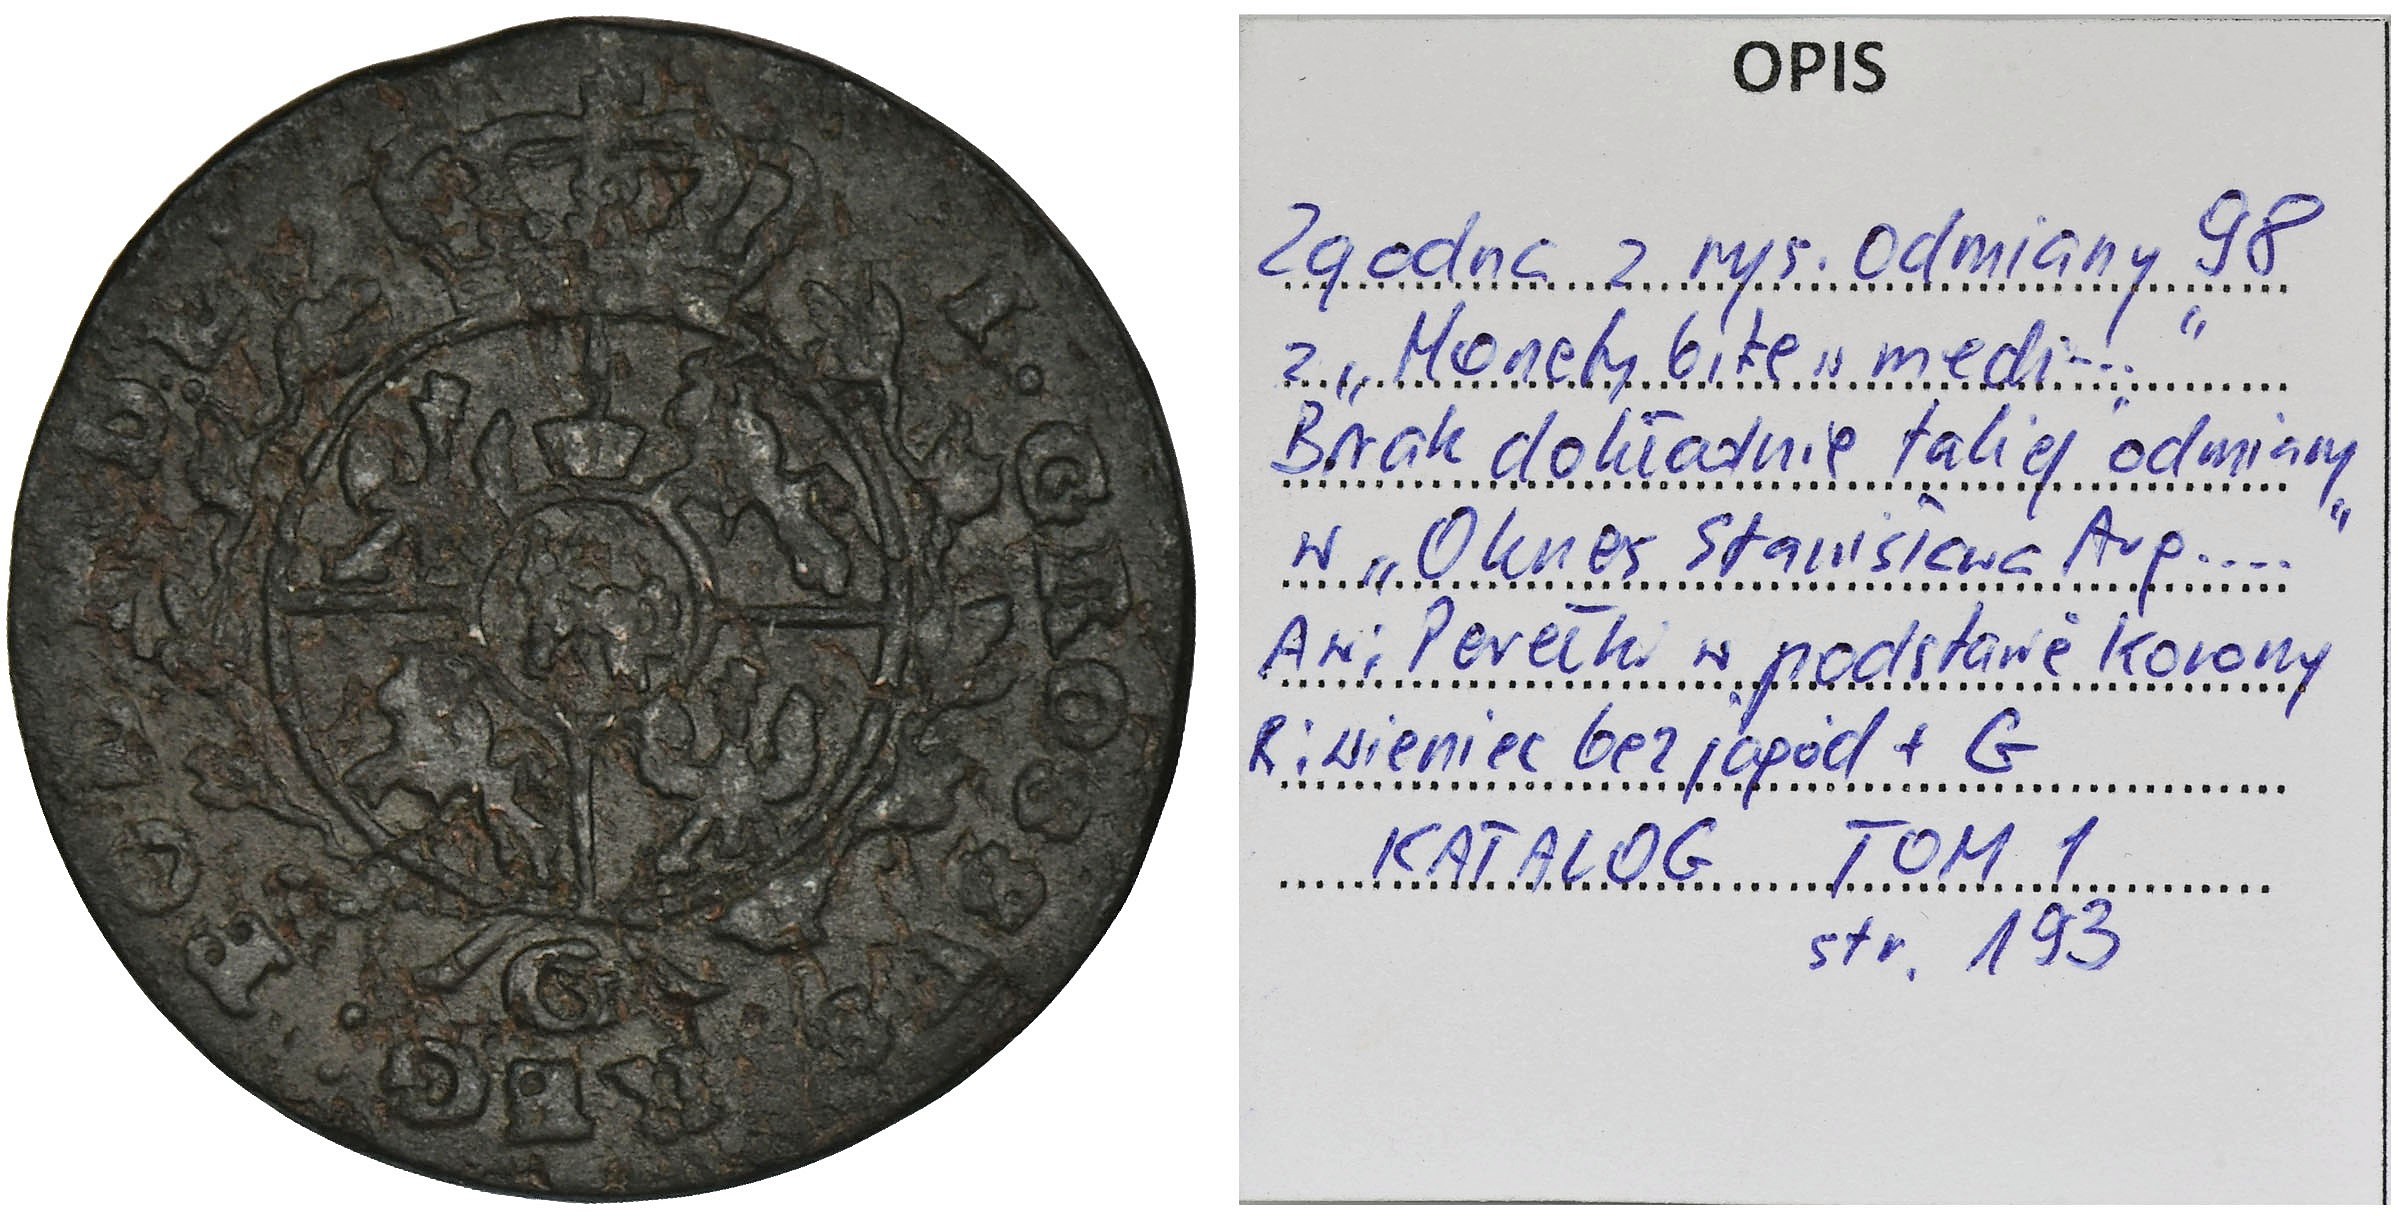 I. GROSS. REG. POL.
G
OPIS
Zgodna z rys. odmiany 98
z „Monety bite w miedzi..."
Brak dokładnie takiej odmiany
w „Okres Stanisława Aug...."
Aw; Perełki w podstawie korony
R: wieniec bez jagód + G
KATALOG TOM 1
str. 193